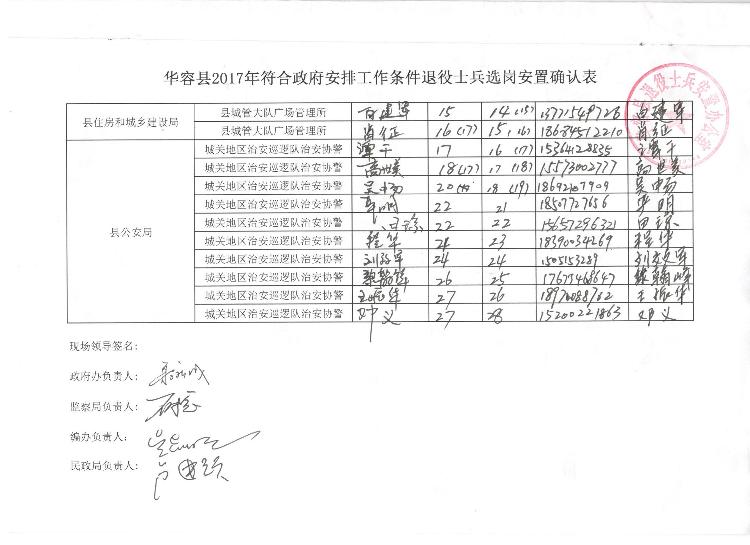 华容县2017年符合政府安排工作条件退役士兵选岗安置确认表
县住房和城乡建设局 县城管大队广场管理所 百建军 15 14(15) 13771549726 百建军
县城管大队广场管理所 肖征 16(17) 15(16) 18684512210 肖征
县公安局 城关地区治安巡逻队治安协警 谭干 17 16(17) 15364128835
城关地区治安巡逻队治安协警 18(17) 17(18) 15573002777
城关地区治安巡逻队治安协警 吴畅 20 18(19) 18692107909 吴畅
城关地区治安巡逻队治安协警 22 21 18507727656
城关地区治安巡逻队治安协警 22 22 15657296321
城关地区治安巡逻队治安协警 程华 24 23 18390034269 程华
城关地区治安巡逻队治安协警 24 24 1505153289
城关地区治安巡逻队治安协警 26 25 17673468647
城关地区治安巡逻队治安协警 27 26
城关地区治安巡逻队治安协警 邓义 27 28 15200221863 邓义
现场领导签名:
政府办负责人:
监察局负责人:
编办负责人:
民政局负责人: